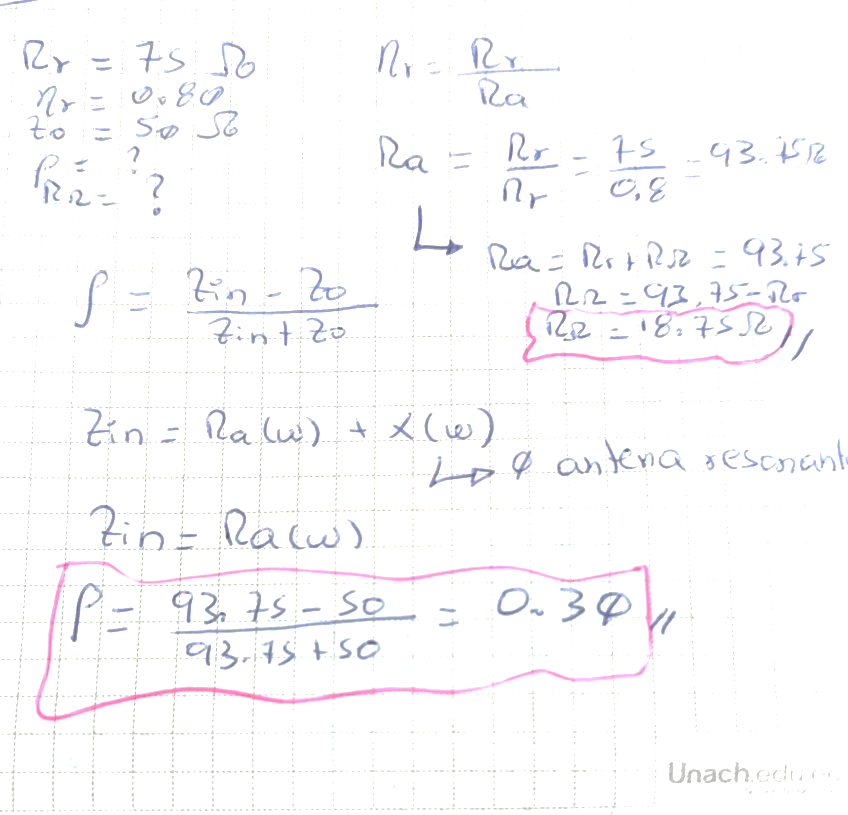 Rr = 75 Ω
ηr = 0.80
Zo = 50 Ω
ρ = ?
RΩ = ?
ηr = Rr / Ra
Ra = Rr / ηr = 75 / 0.8 = 93.75Ω
↳ Ra = Rr + RΩ = 93.75
RΩ = 93.75 - Rr
RΩ = 18.75 Ω //
ρ = Zin - Zo / Zin + Zo
Zin = Ra(w) + X(w)
↳ φ antena resonant
Zin = Ra(w)
ρ = 93.75 - 50 / 93.75 + 50 = 0.30 //
Unach.edu.ec